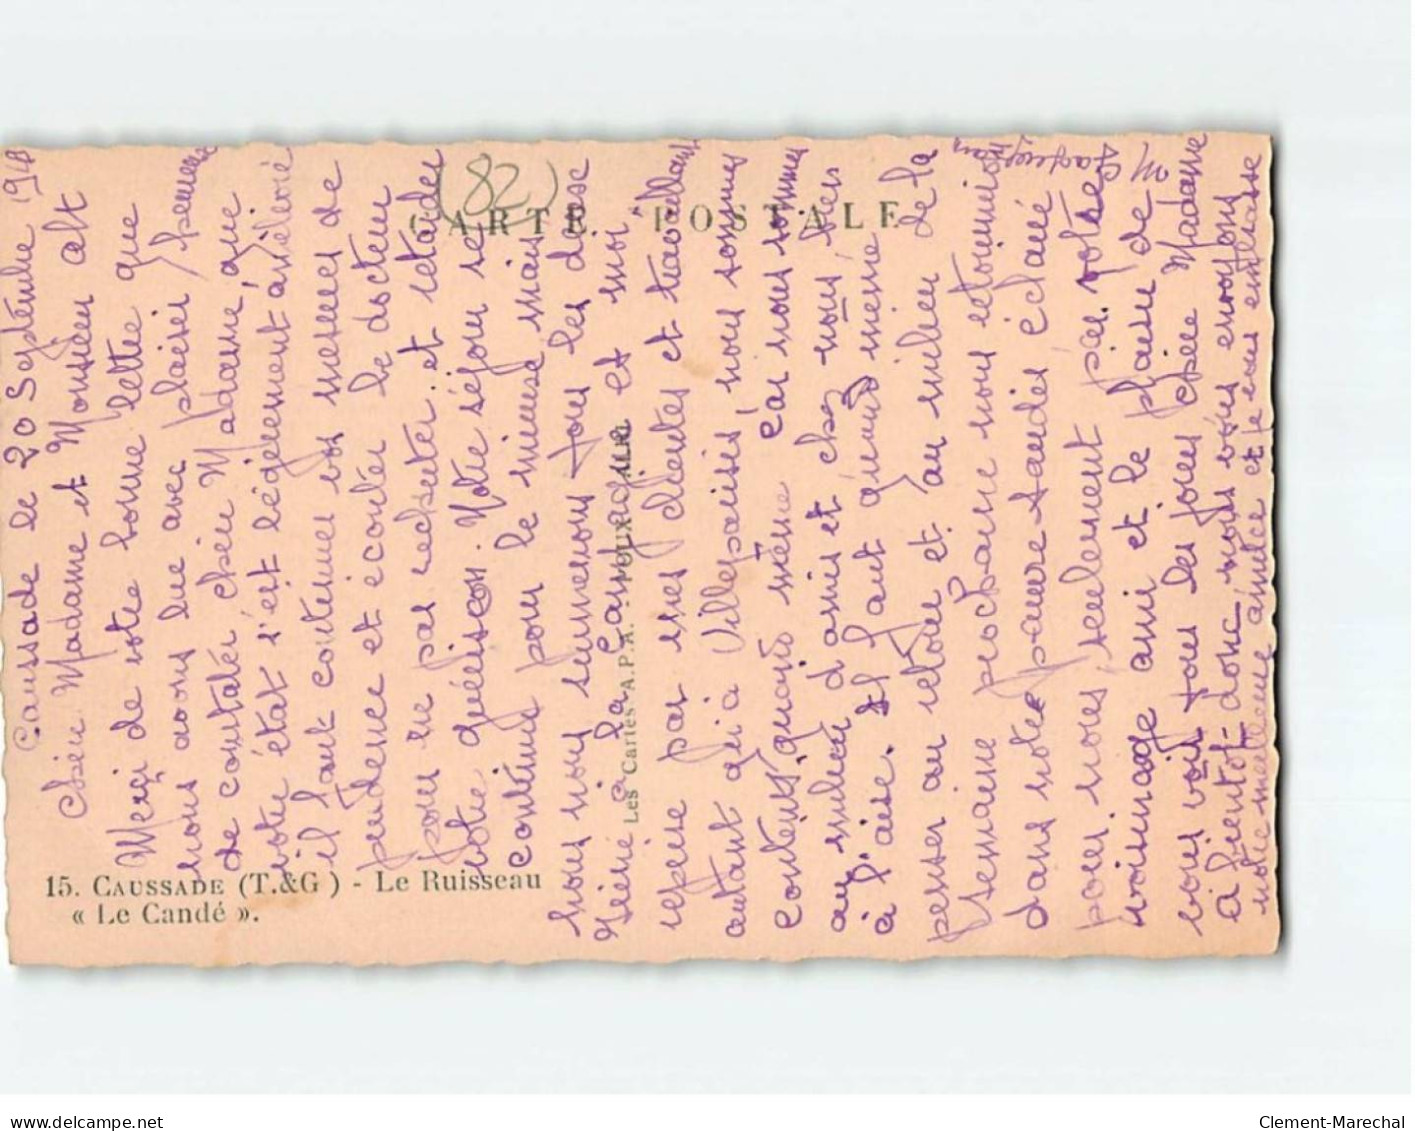 Caussade le 20 Septembre 194
Chère Madame et Monsieur Alt
Merci de votre bonne lettre que
nous avons lue avec plaisir, heureuse
de constater chère Madame, que
votre état s'est légèrement amélioré
il faut continuer vos mesures de
prudence et écouter le docteur
pour ne pas rechuter et retarder
votre guérison. Notre séjour se
continue pour le mieux mais
nous nous surmenons tous les deux
à la campagne et moi
reprise par mes clientes et travaillant
autant qu'à Villeparisis, nous sommes
contents quand même car nous sommes
au milieu d'amis et chez nous, bien
à l'aise. Il faut quand même
penser au retour et au milieu de la
semaine prochaine nous retournerons
dans notre pauvre taudis éclairé
pour nous, seulement par votre
voisinage ami et le plaisir de
vous voir tous les jours chère Madame
à bientôt donc, nous vous envoyons
notre meilleure amitié et je vous embrasse
M
CARTE POSTALE
(82)
Les Cartes A.P.A. - POUX - ALBI
15. CAUSSADE (T.&G) - Le Ruisseau
« Le Candé ».
delcampe.net
Clement-Marechal